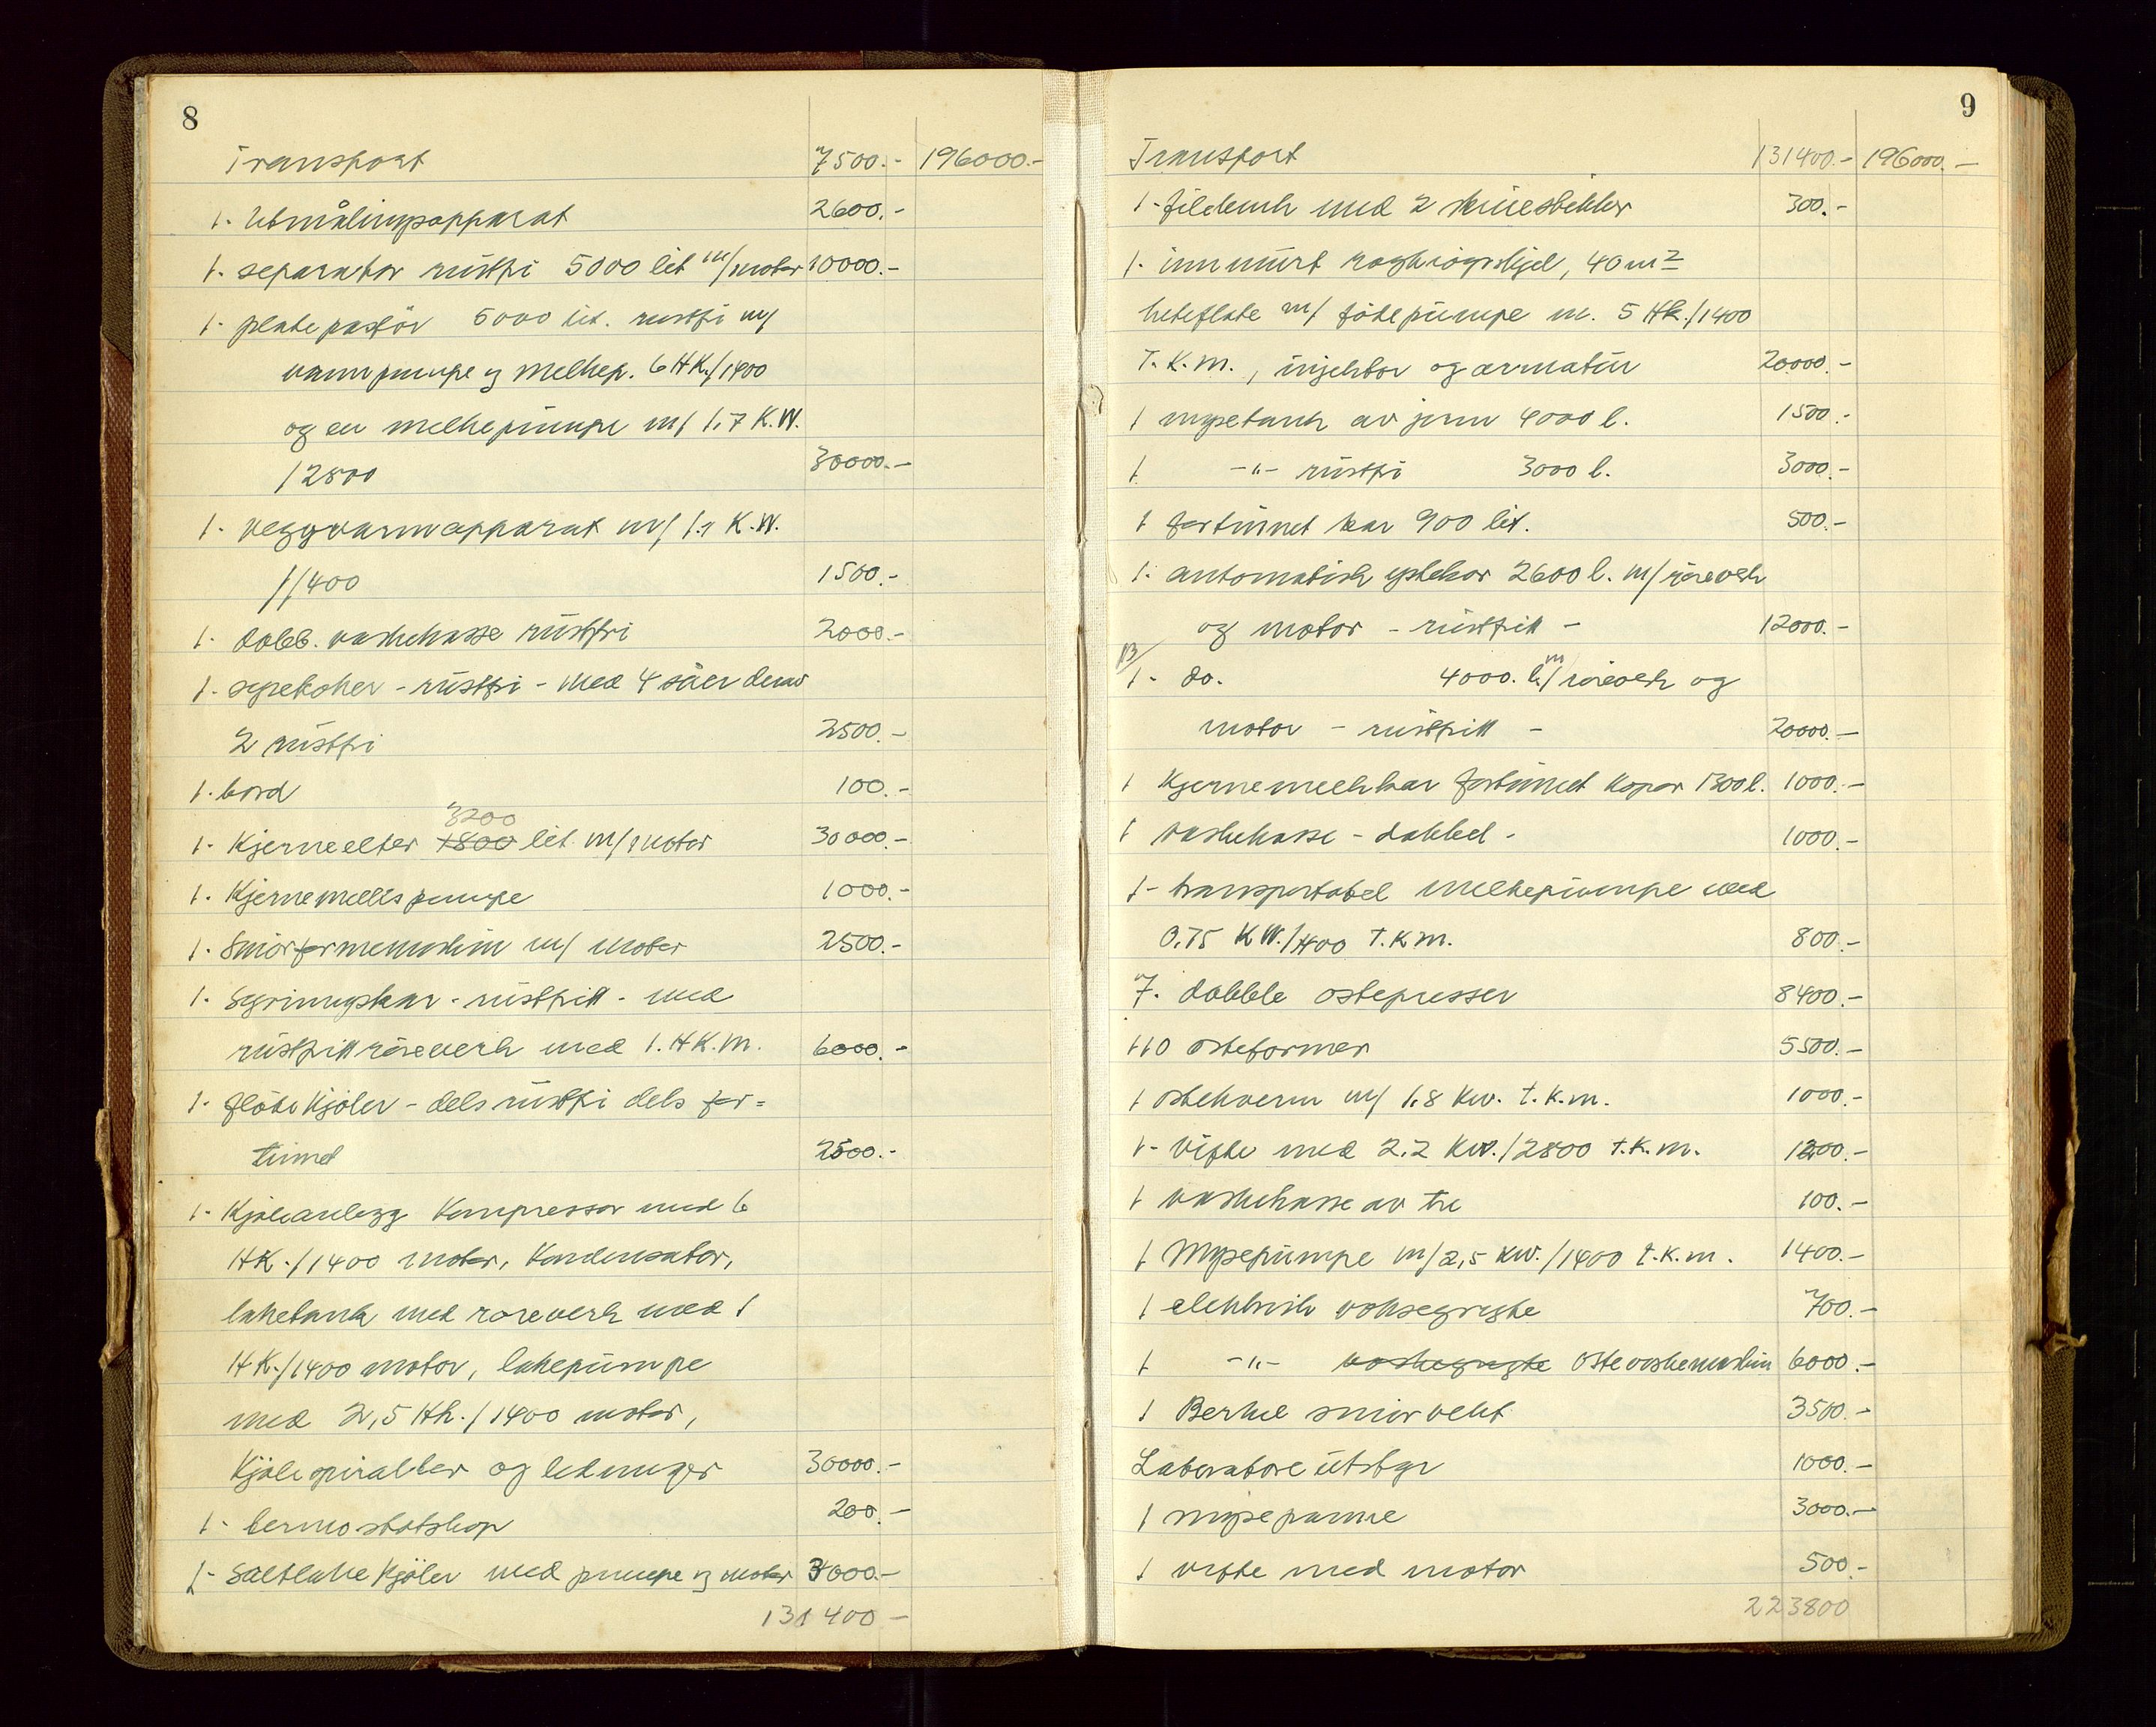 8
Transport 7500.- 196000.-
1. Utmålingsapparat 2600.-
1. separator rustfri 5000 lit m/motor 10000.-
1. platepastör 5000 lit. rustfri m/
vannpumpe og melkep. 6 HK./1400
og en melkepumpe m/ 1,7 K.W.
/2800 30000.-
1. veggvarmeapparat m/ 1.1 K.W.
1/1400 1500.-
1. dobb. vaskekasse rustfri 2000.-
1. sepekoker - rustfri - med 4 såer derav
2 rustfri 2500.-
1. bord 100.-
3200
1. Kjerneelter 1800 lit m/motor 30000.-
1. Kjernemelkspumpe 1000.-
1. Smörformemaskin m/ motor 2500.-
1. Syrningskar - rustfritt - med
rustfritt röreverk med 1. HK.M. 6000.-
1. flöteKjöler - dels rustfri dels for=
tinnet 2500.-
1. Kjöleanlegg Kompressor med 6
HK./1400 motor, Kondensator,
laketank med röreverk med 1
HK./1400 motor, lakepumpe
med 2,5 Hk./1400 motor,
Kjölespiraller og ledninger 30000.-
1. termostatskap 200.-
1- SaltlakeKjöler med pumpe og motor 3000.-
131400-
9
Transport 131400.- 196000.-
1- filetank med 2 300.-
1. innmurt röghrögrskjel, 40 m2
heteflate m/ födepumpe m. 5 Hk./1400
T.K.M., injektor og armatur 20000.-
1 mysetank av jern 4000 l. 1500.-
1 -"- rustfri 3000 l. 3000.-
1 fortinnet kar 900 lit. 500.-
1. automatisk ystekar 2600 l. m/röreverk
og motor - rustfritt - 12000.-
1- do. 4000. l. m/röreverk og
motor - rustfritt - 20000.-
1 Kjernemelkkar fortinnet Kopar 1300 l. 1000.-
1 vaskekasse - dobbel - 1000.-
1- transportabel melkepumpe med
0.75 KW./1400 T.K.M. 800.-
7. dobble ostepresser 8400.-
110 osteformer 5500.-
1 ostekvern m/ 1,8 Kw. t.k.m. 1000.-
1- Vifte med 2.2 Kw./2800 t.k.m. 1200.-
1 vaskekasse av tre 100.-
1 Mysepumpe m/2,5 kw./1400 t.k.m. 1400.-
1 elektrisk voksegryte 700.-
1 -"- voksegryte Ostevoskemaskin 6000.-
1 Berkel smörvekt 3500.-
Laboratore utstyr 1000.-
1 mysepanne 3000.-
1 vifte med motor 500.-
223800